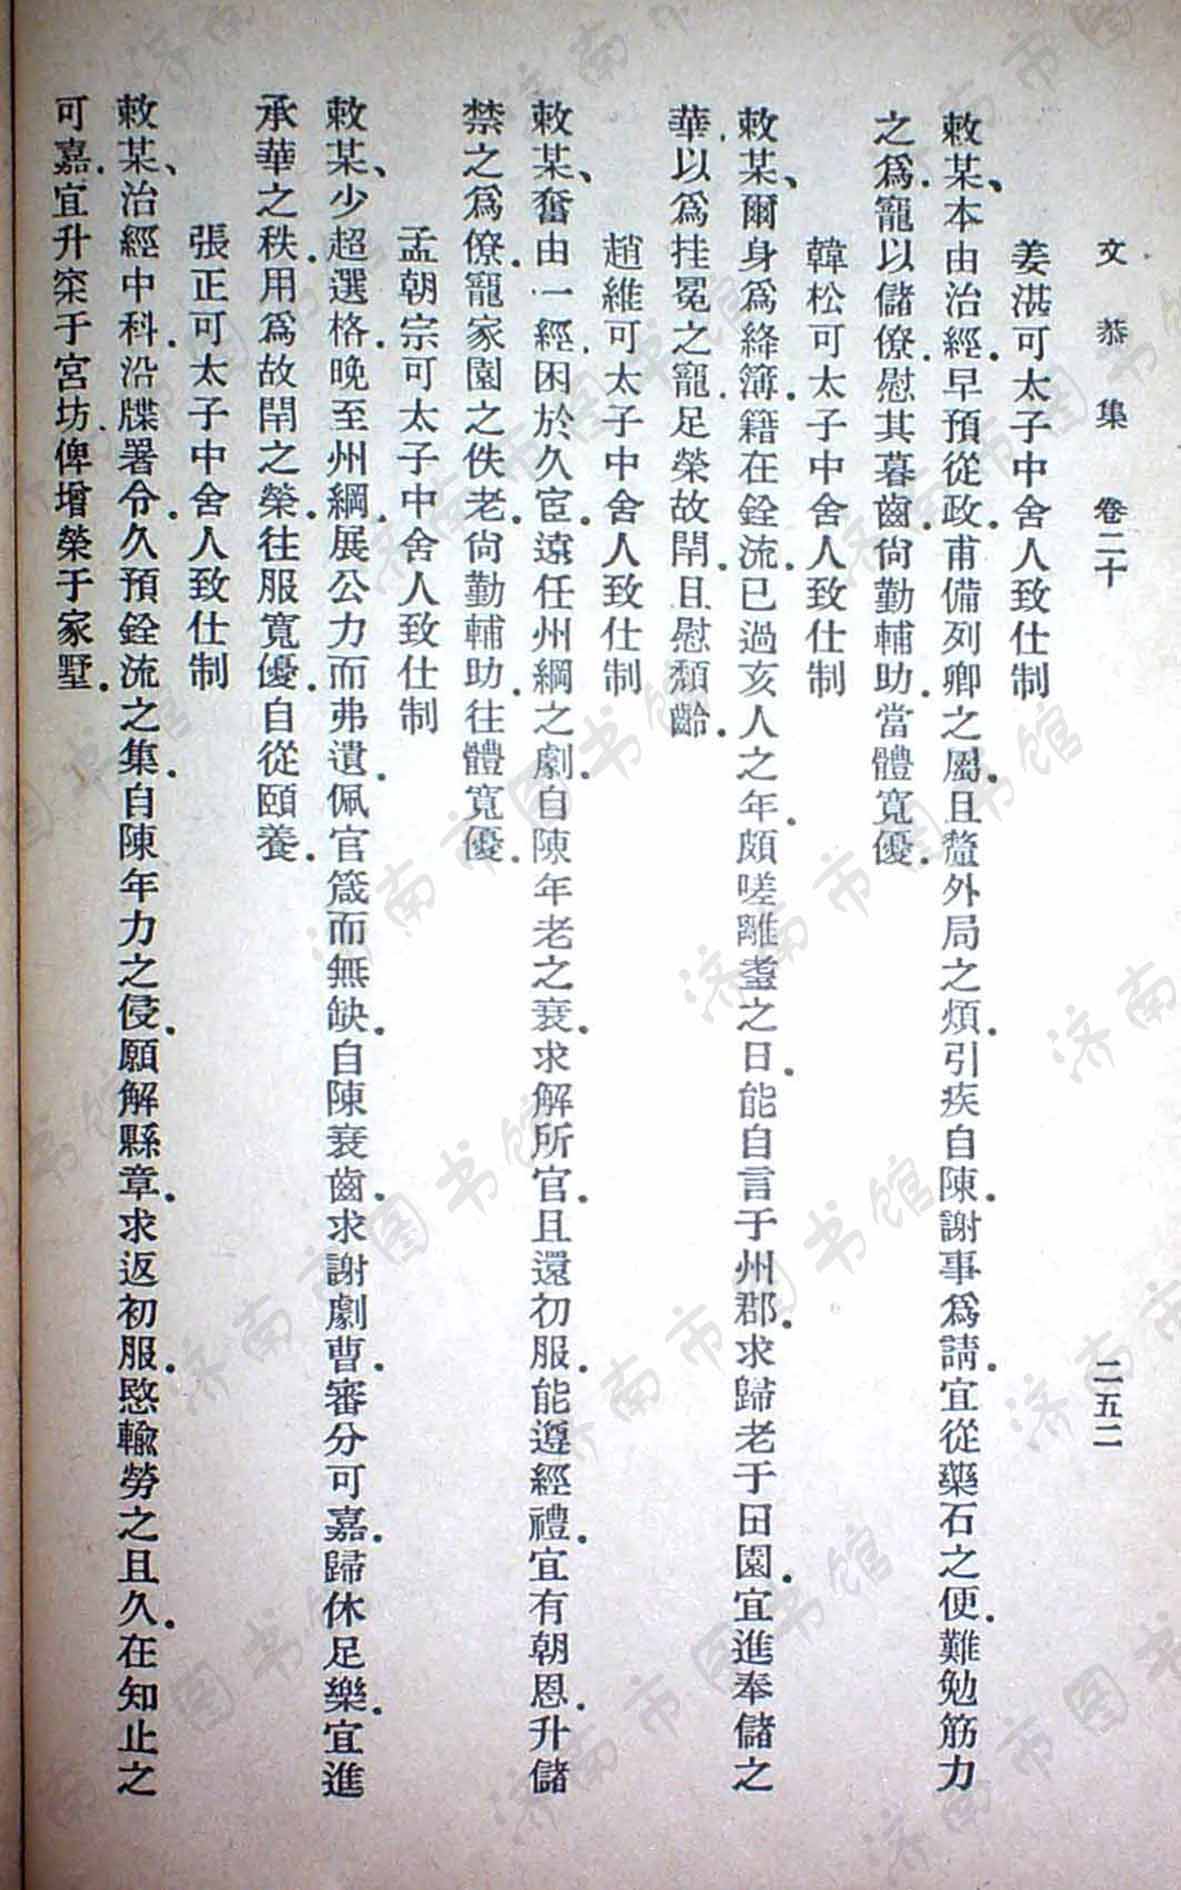 文恭集 卷二十 二五二
姜湛可太子中舍人致仕制
敕某、本由治經．早預從政．甫備列卿之屬．且釐外局之煩．引疾自陳．謝事爲請．宜從藥石之便．難勉筋力
之爲．寵以儲僚．慰其暮齒．尙勤輔助．當體寬優．
韓松可太子中舍人致仕制
敕某、爾身爲絳簿．籍在銓流．已過亥人之年．頗嗟離耋之日．能自言于州郡．求歸老于田園．宜進奉儲之
華．以爲挂冕之寵．足榮故閈．且慰頹齡．
趙維可太子中舍人致仕制
敕某、奮由一經．困於久宦．遠任州綱之劇．自陳年老之衰．求解所官．且還初服．能遵經禮．宜有朝恩．升儲
禁之爲僚．寵家園之佚老．尙勤輔助．往體寬優．
孟朝宗可太子中舍人致仕制
敕某、少超選格．晚至州綱．展公力而弗遺．佩官箴而無缺．自陳衰齒．求謝劇曹．審分可嘉．歸休足樂．宜進
承華之秩．用爲故閈之榮．往服寬優．自從頤養．
張正可太子中舍人致仕制
敕某、治經中科．沿牒署令．久預銓流之集．自陳年力之侵．願解縣章．求返初服．愍輸勞之且久．在知止之
可嘉．宜升寀于宮坊．俾增榮于家墅．
济南市图书馆